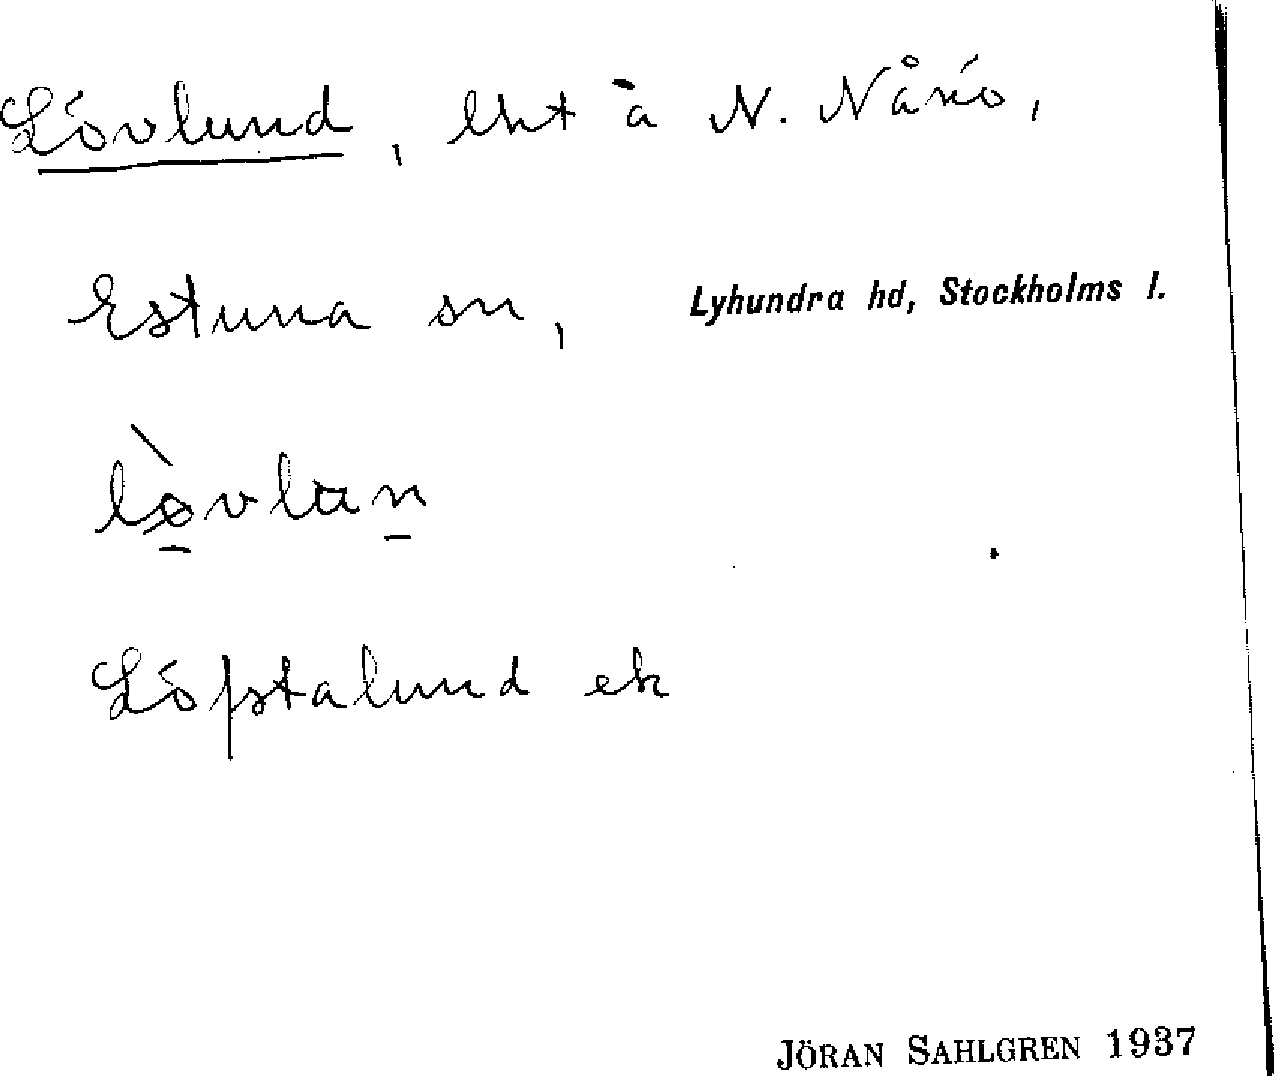 Lövlund, lht å N. Nånö,
Estuna sn, Lyhundra hd, Stockholms l.
Löfstalund ek
JÖRAN SAHLGREN 1937